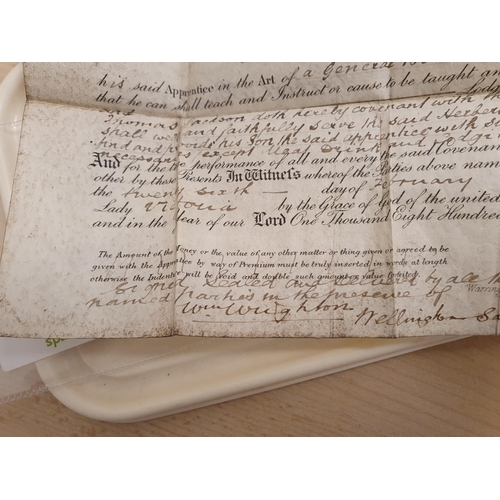 his said Apprentice in the Art of a General
that he can shall teach and Instruct or cause to be taught an
Thomas Jackson doth hereby covenant with
shall well and faithfully serve the said Herbert
find and provide his Son, the said apprentice with
necessaries except Meat Drink and Lodg
And for the performance of all and every the said Covenan
other by these Presents In Witness whereof the Parties above name
the twenty sixth day of February
Lady Victoria by the Grace of God of the united
and in the Year of our Lord One Thousand Eight Hundred
The Amount of the Money or the value of any other matter or thing given or agreed to be
given with the Apprentice by way of Premium must be truly inserted in words at length
otherwise the Indenture will be void and double such amount or value forfeited.
Signed Sealed and delivered by all the
Warring
named parties in the presence of
Wm Wrighton
Wellington
sp